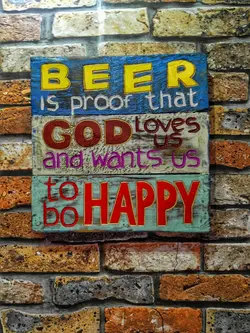 BEER
is proof that
GOD loves
us
and wants us
to
bo HAPPY